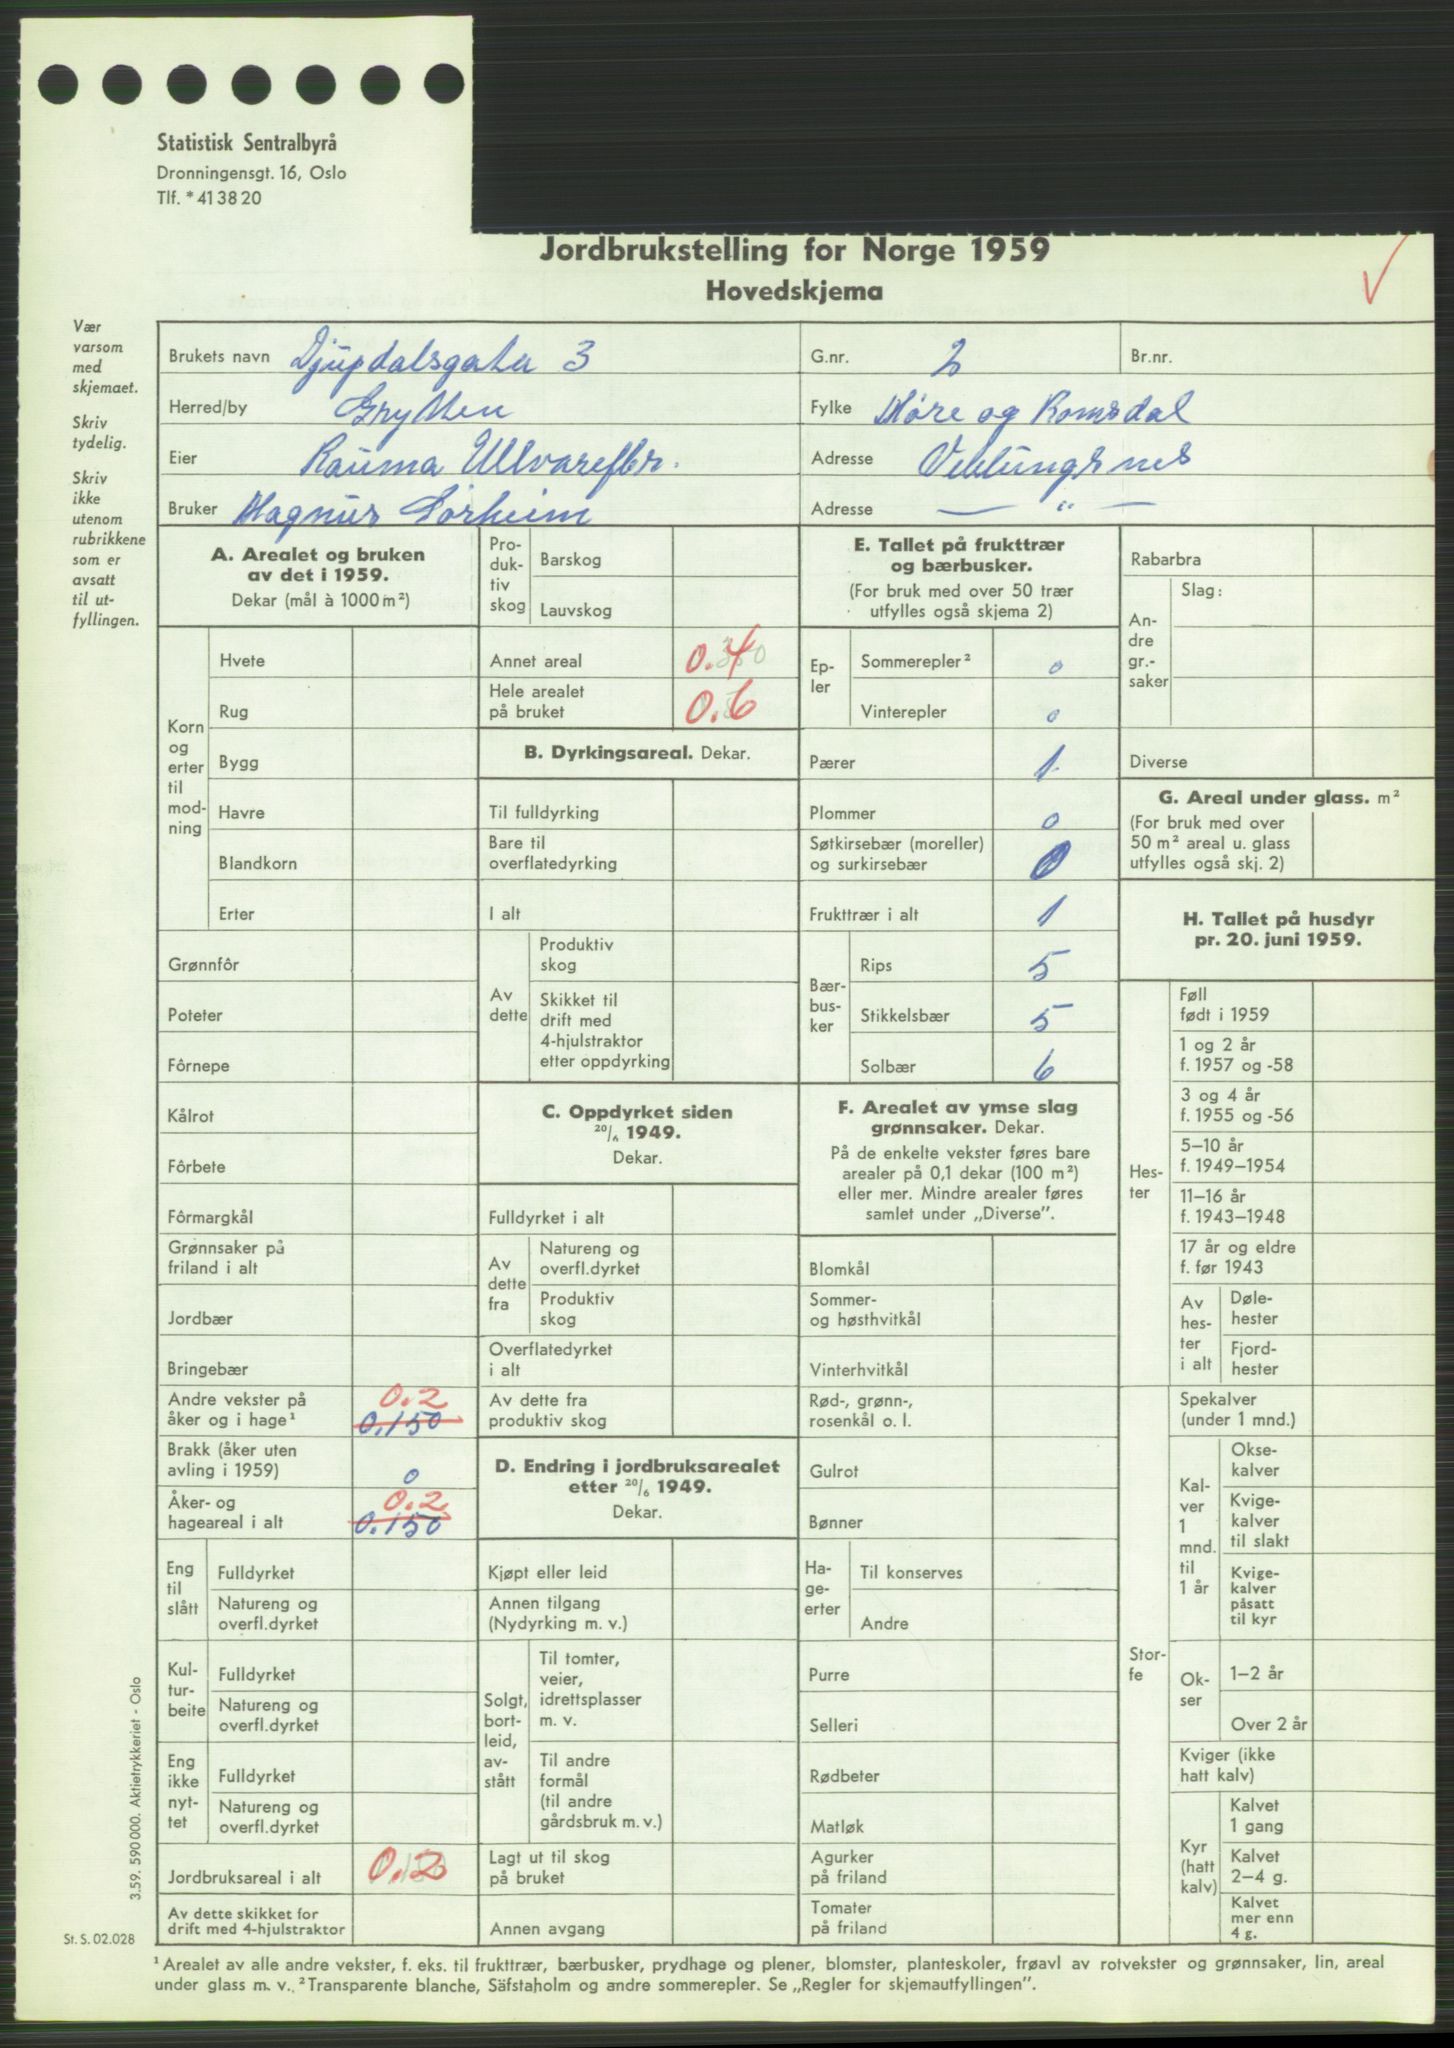 Statistisk Sentralbyrå
Dronningensgt. 16, Oslo
Tlf. * 41 38 20
Jordbrukstelling for Norge 1959
Hovedskjema
Vær
varsom
med
skjemaet.
Skriv
tydelig.
Skriv
ikke
utenom
rubrikkene
som er
avsatt
til ut-
fyllingen.
Brukets navn Djupdalsgata 3
G.nr. 2
Br.nr.
Herred/by Grytten
Fylke Møre og Romsdal
Eier Rauma Ullvarefbr.
Adresse Veblungsnes
Bruker Magnus Sørheim
Adresse — " —
A. Arealet og bruken
av det i 1959.
Dekar (mål à 1000 m²)
Korn
og
erter
til
mod-
ning
Hvete
Rug
Bygg
Havre
Blandkorn
Erter
Grønnfôr
Poteter
Fôrnepe
Kålrot
Fôrbete
Fôrmargkål
Grønnsaker på
friland i alt
Jordbær
Bringebær
Andre vekster på
åker og i hage¹
0.2
0.150
Brakk (åker uten
avling i 1959)
0
Åker- og
hageareal i alt
0.2
0.150
Eng
til
slått
Fulldyrket
Natureng og
overfl.dyrket
Kul-
tur-
beite
Fulldyrket
Natureng og
overfl.dyrket
Eng
ikke
nyt-
tet
Fulldyrket
Natureng og
overfl.dyrket
Jordbruksareal i alt 0.2
Av dette skikket for
drift med 4-hjulstraktor
Pro-
duk-
tiv
skog
Barskog
Lauvskog
Annet areal 0.4
Hele arealet
på bruket
0.6
B. Dyrkingsareal. Dekar.
Til fulldyrking
Bare til
overflatedyrking
I alt
Av
dette
Produktiv
skog
Skikket til
drift med
4-hjulstraktor
etter oppdyrking
C. Oppdyrket siden
20/6 1949.
Dekar.
Fulldyrket i alt
Av
dette
fra
Natureng og
overfl.dyrket
Produktiv
skog
Overflatedyrket
i alt
Av dette fra
produktiv skog
D. Endring i jordbruksarealet
etter 20/6 1949.
Dekar.
Kjøpt eller leid
Annen tilgang
(Nydyrking m. v.)
Solgt,
bort-
leid,
av-
stått
Til tomter,
veier,
idrettsplasser
m. v.
Til andre
formål
(til andre
gårdsbruk m. v.)
Lagt ut til skog
på bruket
Annen avgang
E. Tallet på frukttrær
og bærbusker.
(For bruk med over 50 trær
utfylles også skjema 2)
Ep-
ler
Sommerepler² 0
Vinterepler 0
Pærer 1
Plommer 0
Søtkirsebær (moreller)
og surkirsebær
0
Frukttrær i alt 1
Bær-
bus-
ker
Rips 5
Stikkelsbær 5
Solbær 6
F. Arealet av ymse slag
grønnsaker. Dekar.
På de enkelte vekster føres bare
arealer på 0,1 dekar (100 m²)
eller mer. Mindre arealer føres
samlet under „Diverse”.
Blomkål
Sommer-
og høsthvitkål
Vinterhvitkål
Rød-, grønn-,
rosenkål o. l.
Gulrot
Bønner
Ha-
ge-
erter
Til konserves
Andre
Purre
Selleri
Rødbeter
Matløk
Agurker
på friland
Tomater
på friland
Rabarbra
An-
dre
gr.-
saker
Slag:
Diverse
G. Areal under glass. m²
(For bruk med over
50 m² areal u. glass
utfylles også skj. 2)
H. Tallet på husdyr
pr. 20. juni 1959.
Hes-
ter
Føll
født i 1959
1 og 2 år
f. 1957 og -58
3 og 4 år
f. 1955 og -56
5–10 år
f. 1949–1954
11–16 år
f. 1943–1948
17 år og eldre
f. før 1943
Av
hes-
ter
i alt
Døle-
hester
Fjord-
hester
Stor-
fe
Spekalver
(under 1 mnd.)
Kal-
ver
1
mnd.
til
1 år
Okse-
kalver
Kvige-
kalver
til slakt
Kvige-
kalver
påsatt
til kyr
Ok-
ser
1–2 år
Over 2 år
Kviger (ikke
hatt kalv)
Kyr
(hatt
kalv)
Kalvet
1 gang
Kalvet
2–4 g.
Kalvet
mer enn
4 g.
3.59. 590000. Aktietrykkeriet - Oslo
St. S. 02.028
¹ Arealet av alle andre vekster, f. eks. til frukttrær, bærbusker, prydhage og plener, blomster, planteskoler, frøavl av rotvekster og grønnsaker, lin, areal
under glass m. v. ² Transparente blanche, Säfstaholm og andre sommerepler. Se „Regler for skjemautfyllingen”.